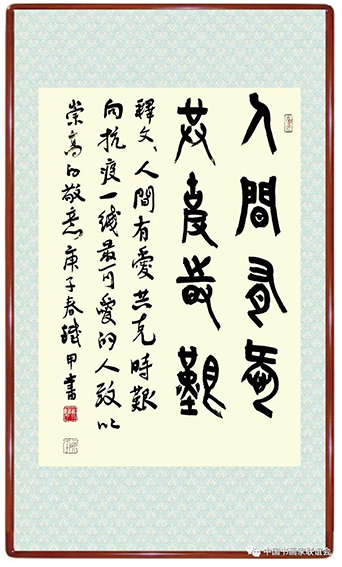 人間有愛
共克時艱
釋文、人間有愛共克時艱
向抗疫一綫最可愛的人致以
崇高的敬意庚子春鐵甲書
中国书画家联谊会